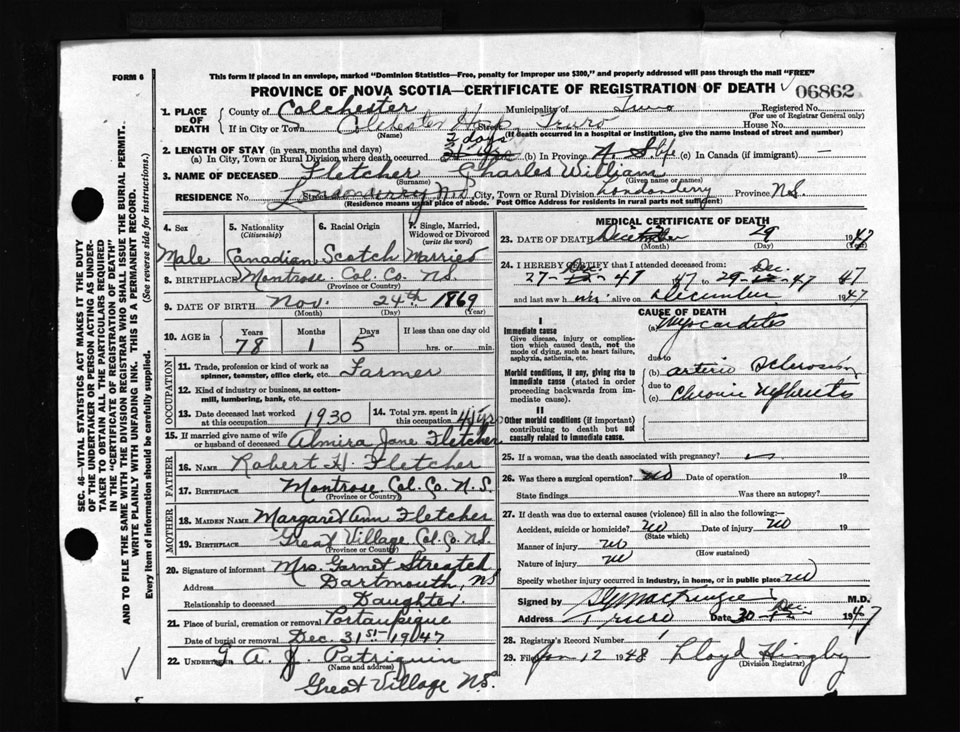 FORM 6
This form if placed in an envelope, marked "Dominion Statistics—Free, penalty for improper use $300," and properly addressed will pass through the mail "FREE"
PROVINCE OF NOVA SCOTIA—CERTIFICATE OF REGISTRATION OF DEATH 06862
SEC. 46—VITAL STATISTICS ACT MAKES IT THE DUTY
OF THE UNDERTAKER OR PERSON ACTING AS UNDER-
TAKER TO OBTAIN ALL THE PARTICULARS REQUIRED
IN THE "CERTIFICATE OF REGISTRATION OF DEATH"
AND TO FILE THE SAME WITH THE DIVISION REGISTRAR WHO SHALL ISSUE THE BURIAL PERMIT.
WRITE PLAINLY WITH UNFADING INK. THIS IS A PERMANENT RECORD.
Every item of information should be carefully supplied. (See reverse side for instructions.)
1. PLACE OF DEATH
County of Colchester Municipality of Truro Registered No.
(For use of Registrar General only)
If in City or Town Colchester Hosp. Truro Street House No.
(Name) (If death occurred in a hospital or institution, give the name instead of street and number)
2. LENGTH OF STAY (in years, months and days) 2 days
(a) In City, Town or Rural Division where death occurred (b) In Province N.S. life (c) In Canada (if immigrant) —
3. NAME OF DECEASED Fletcher Charles William
(Surname) (Given name or names)
RESIDENCE No. Street Londonderry N.S. City, Town or Rural Division Londonderry Province N.S.
(Residence means usual place of abode.) Post Office Address for residents in rural parts not sufficient)
4. Sex
Male
5. Nationality
(Citizenship)
Canadian
6. Racial Origin
Scotch
7. Single, Married, Widowed or Divorced
(write the word)
Married
8. BIRTHPLACE Montrose Col. Co. N.S.
(Province or Country)
9. DATE OF BIRTH Nov. 24th 1869
(Month) (Day) (Year)
10. AGE in Years Months Days If less than one day old
78 1 5 hrs. or min.
OCCUPATION
11. Trade, profession or kind of work as spinner, teamster, office clerk, etc. Farmer
12. Kind of industry or business, as cotton-mill, lumbering, bank, etc.
13. Date deceased last worked at this occupation 1930
14. Total yrs. spent in this occupation
15. If married give name of wife or husband of deceased Almira Jane Fletcher
FATHER
16. NAME Robert H. Fletcher
17. BIRTHPLACE Montrose Col. Co. N.S.
(Province or Country)
MOTHER
18. MAIDEN NAME Margaret Ann Fletcher
19. BIRTHPLACE Great Village Col. Co. N.S.
(Province or Country)
20. Signature of informant Mrs. Garnet
Address Dartmouth, NS
Relationship to deceased Daughter.
21. Place of burial, cremation or removal Portaupique
Date of burial or removal Dec. 31st 1947
22. UNDERTAKER A. J. Patriquin
(Name and address)
Great Village N.S.
MEDICAL CERTIFICATE OF DEATH
23. DATE OF DEATH December 29 1947
(Month) (Day) (Year)
24. I HEREBY CERTIFY that I attended deceased from:
27 Dec. 47 to 29 Dec. 47
and last saw h im alive on December 1947
CAUSE OF DEATH
I
Immediate cause
Give disease, injury or complication which caused death, not the mode of dying, such as heart failure, asphyxia, asthenia, etc.
(a) Myocarditis
due to
Morbid conditions, if any, giving rise to immediate cause (stated in order proceeding backwards from immediate cause).
(b) arterio Sclerosis
due to
(c) Chronic Nephritis
II
Other morbid conditions (if important) contributing to death but not causally related to immediate cause.
25. If a woman, was the death associated with pregnancy?
26. Was there a surgical operation? no Date of operation 19
State findings Was there an autopsy?
27. If death was due to external causes (violence) fill in also the following:—
Accident, suicide or homicide? no Date of injury no 19
(State which)
Manner of injury no
(How sustained)
Nature of injury no
Specify whether injury occurred in industry, in home, or in public place no
Signed by MacKenzie M.D.
Address Truro Date 30 Dec. 1947
28. Registrar's Record Number 1
29. Filed Jan 12 1948 Lloyd
(Division Registrar)